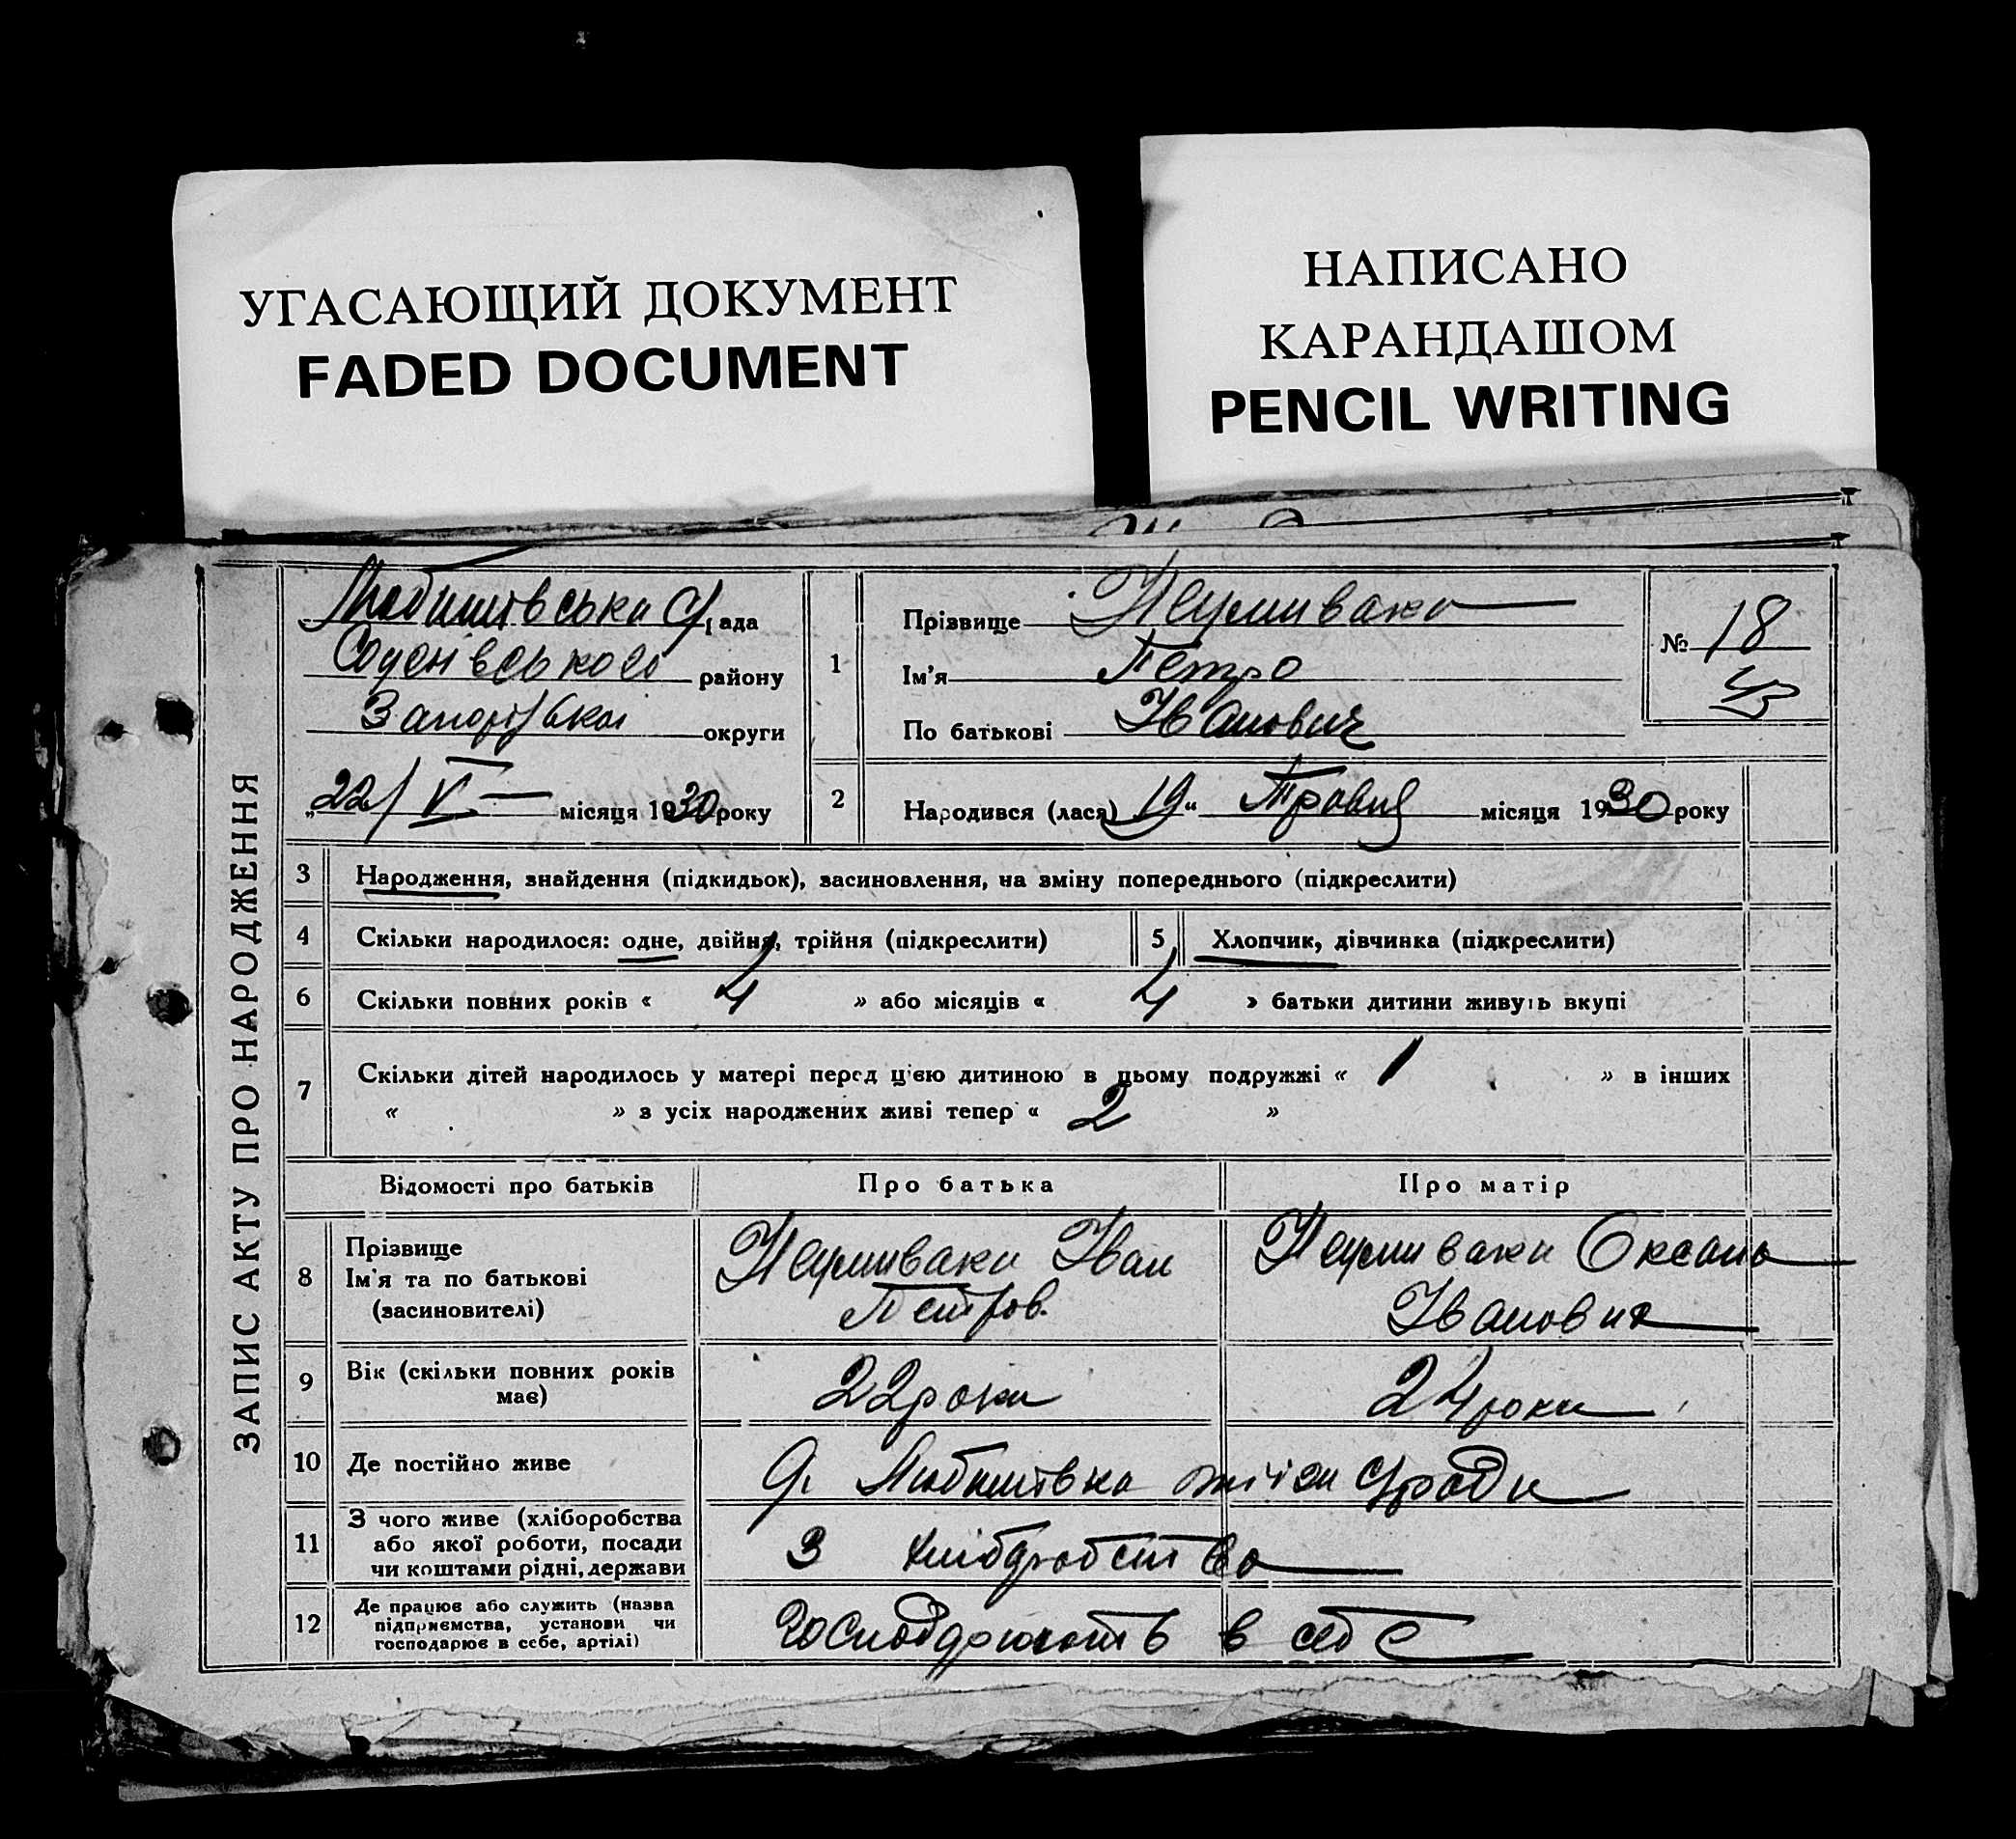 УГАСАЮЩИЙ ДОКУМЕНТ
FADED DOCUMENT
НАПИСАНО
КАРАНДАШОМ
PENCIL WRITING
ЗАПИС АКТУ ПРО НАРОДЖЕННЯ
рада
району
округи
22/V місяця 1930 року
1
Прізвище Неумивака
Ім'я Петро
По батькові Іванович
№ 18
2
Народився (лася) 19 „ Травня місяця 1930 року
3 Народження, знайдення (підкидьок), засиновлення, на зміну попереднього (підкреслити)
4 Скільки народилося: одне, двійня, трійня (підкреслити)
5 Хлопчик, дівчинка (підкреслити)
6 Скільки повних років « 4 » або місяців « 4 » батьки дитини живуть вкупі
7 Скільки дітей народилось у матері перед ц'єю дитиною в цьому подружжі « 1 » в інших
« » з усіх народжених живі тепер « 2 »
Відомості про батьків Про батька Про матір
8 Прізвище
Ім'я та по батькові
(засиновителі)
Неумивака Іван
Петров.
Неумивака Оксана
Івановна
9 Вік (скільки повних років
має)
22 роки
24 роки
10 Де постійно живе
Любимівка
11 З чого живе (хліборобства
або якої роботи, посади
чи коштами рідні, держави
З хліборобства
12 Де працює або служить (назва
підприємства, установи чи
господарює в себе, артілі)
в себе